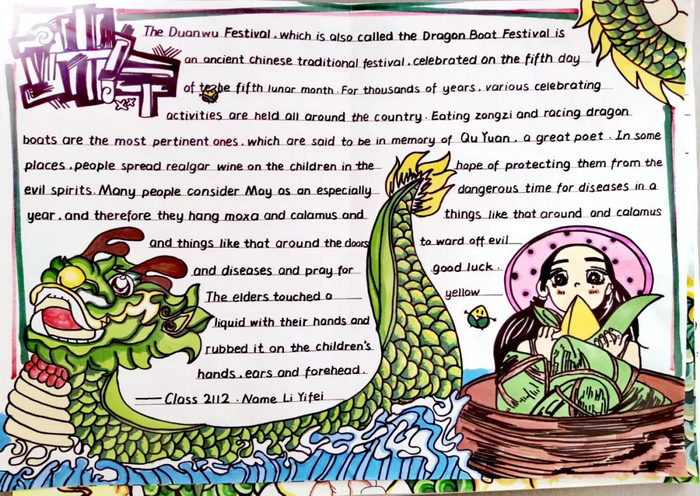 The Duanwu Festival, which is also called the Dragon Boat Festival is
an ancient chinese traditional festival, celebrated on the fifth day
of the fifth lunar month. For thousands of years, various celebrating
activties are held all around the country. Eating zongzi and racing dragon
boats are the most pertinent ones, which are said to be in memory of Qu Yuan, a great poet. In some
places, people spread realgar wine on the children in the hope of protecting them from the
evil spirits. Many people consider May as an especially dangerous time for diseases in a
year, and therefore they hang moxa and calamus and things like that around and calamus
and things like that around the doors to ward off evil
and diseases and pray for good luck.
The elders touched a yellow
liquid with their hands and
rubbed it on the children's
hands, ears and forehead.
— Class 2112. Name Li Yifei